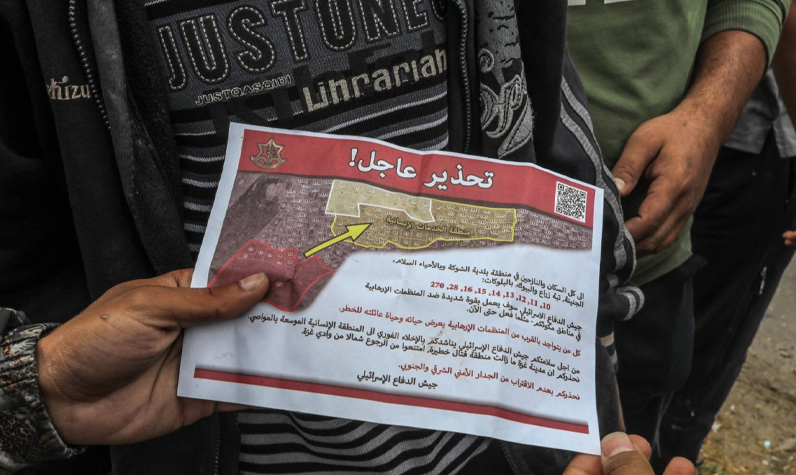 JUSTONE
JUSTQASQIOI
Librarian
whizu
تحذير عاجل!
منطقة الخدمات الإنسانية
الى كل السكان والنازحين في منطقة بلدية الشوكة وبالأحياء السلام،
الجنينة، تبة زراع والبيوك بالبلوكات:
10, 11, 12, 13, 14, 15, 16, 28, 270
جيش الدفاع الاسرائيلي سوف يعمل بقوة شديدة ضد المنظمات الإرهابية
في مناطق مكوثكم، مثلما فعل حتى الآن.
كل من يتواجد بالقرب من المنظمات الإرهابية يعرض حياته وحياة عائلته للخطر.
من اجل سلامتكم جيش الدفاع الإسرائيلي يناشدكم بالإخلاء الفوري الى المنطقة الإنسانية الموسعة بالمواصي.
نحذركم ان مدينة غزة ما زالت منطقة قتال خطيرة، امتنعوا من الرجوع شمالا من وادي غزة.
نحذركم بعدم الاقتراب من الجدار الأمني الشرقي والجنوبي.
جيش الدفاع الإسرائيلي